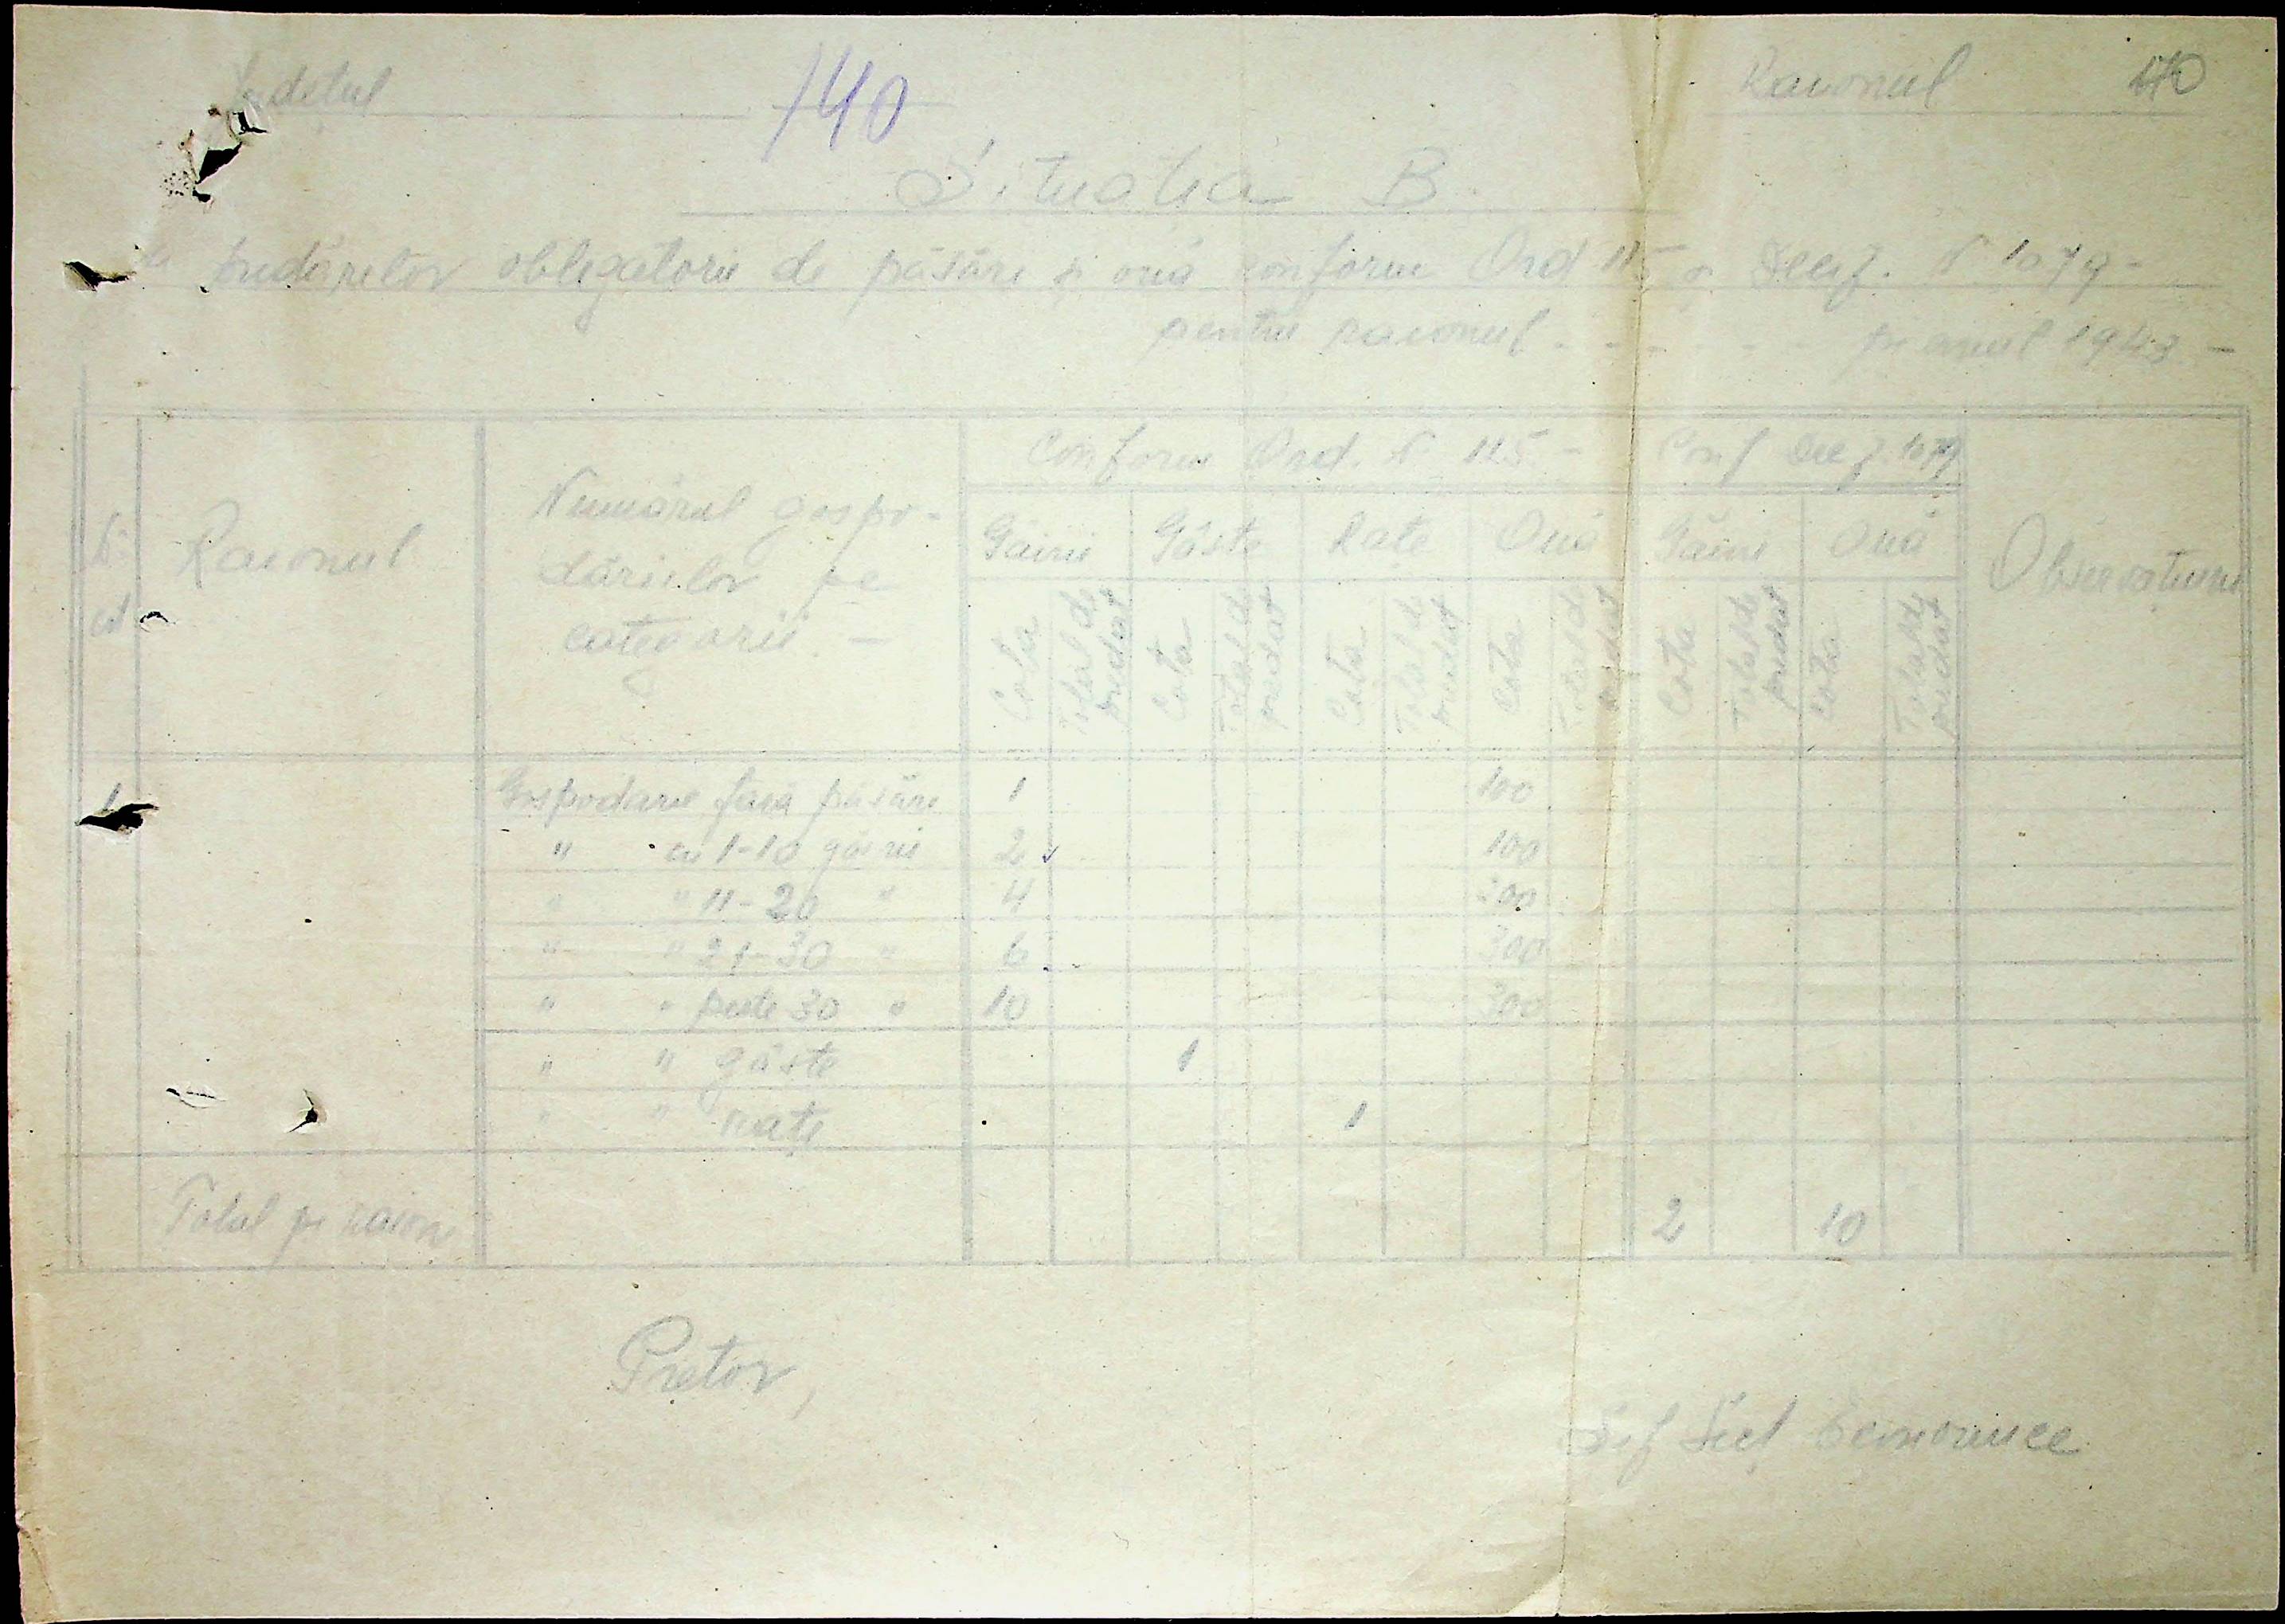 Județul 140 Raionul 40
Situația B.
a predărilor obligatorii de păsări și ouă conform Ord 115 și Deciz. N 1079 -
pentru raionul - - - - - - pe anul 1943 -
Conform Ord. N 115 - Conf Deciz 1079
Raionul Numărul gospo-
dăriilor pe
categorii. -
Găini Gâște Rațe Ouă Găini Ouă Observațiuni
Cota Total de predat Cota Total de predat Cota Total de predat Cota Total de predat Cota Total de predat Cota Total de predat
1 Gospodarii fară păsări 1 100
" cu 1-10 găini 2 100
" " 11-20 " 4 200
" " 21-30 " 6 300
" " peste 30 " 10 300
" " gâște 1
" " rațe 1
Total pe raion 2 10
Pretor,
Șef Secț Economice